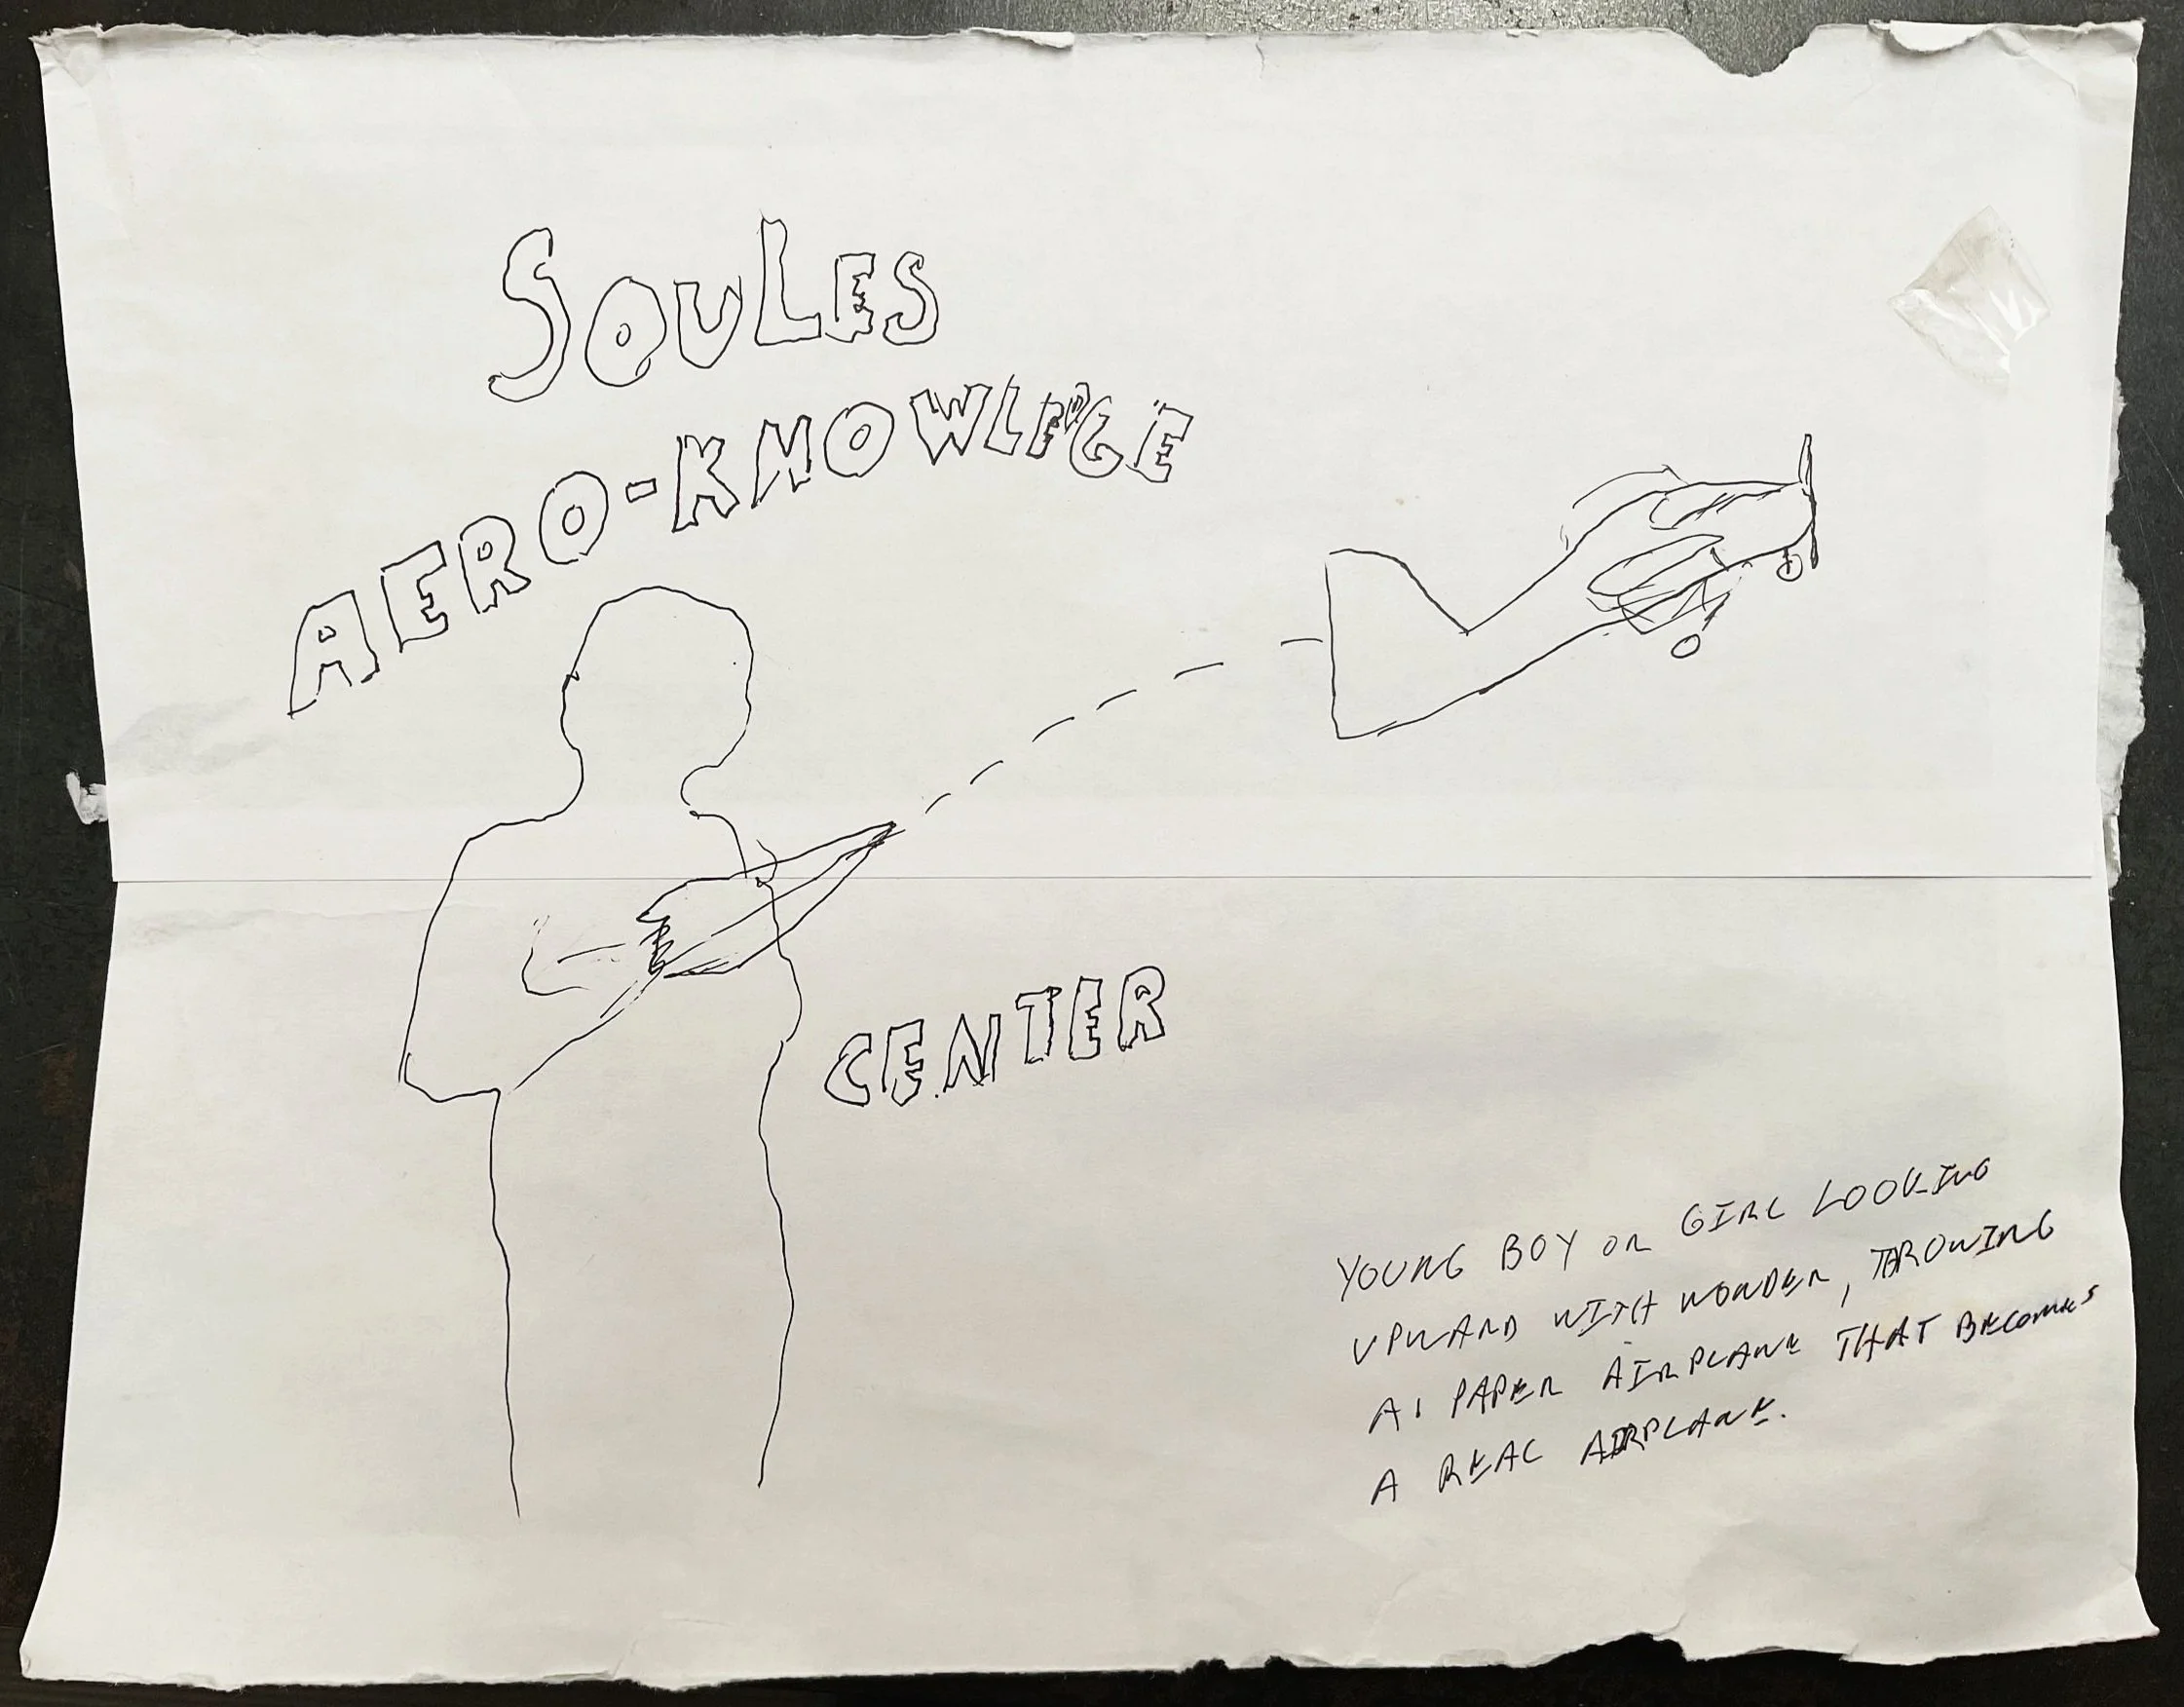 SOULES
AERO-KNOWLEDGE
CENTER
YOUNG BOY OR GIRL LOOKING
UPWARD WITH WONDER, THROWING
A PAPER AIRPLANE THAT BECOMES
A REAL AIRPLANE.